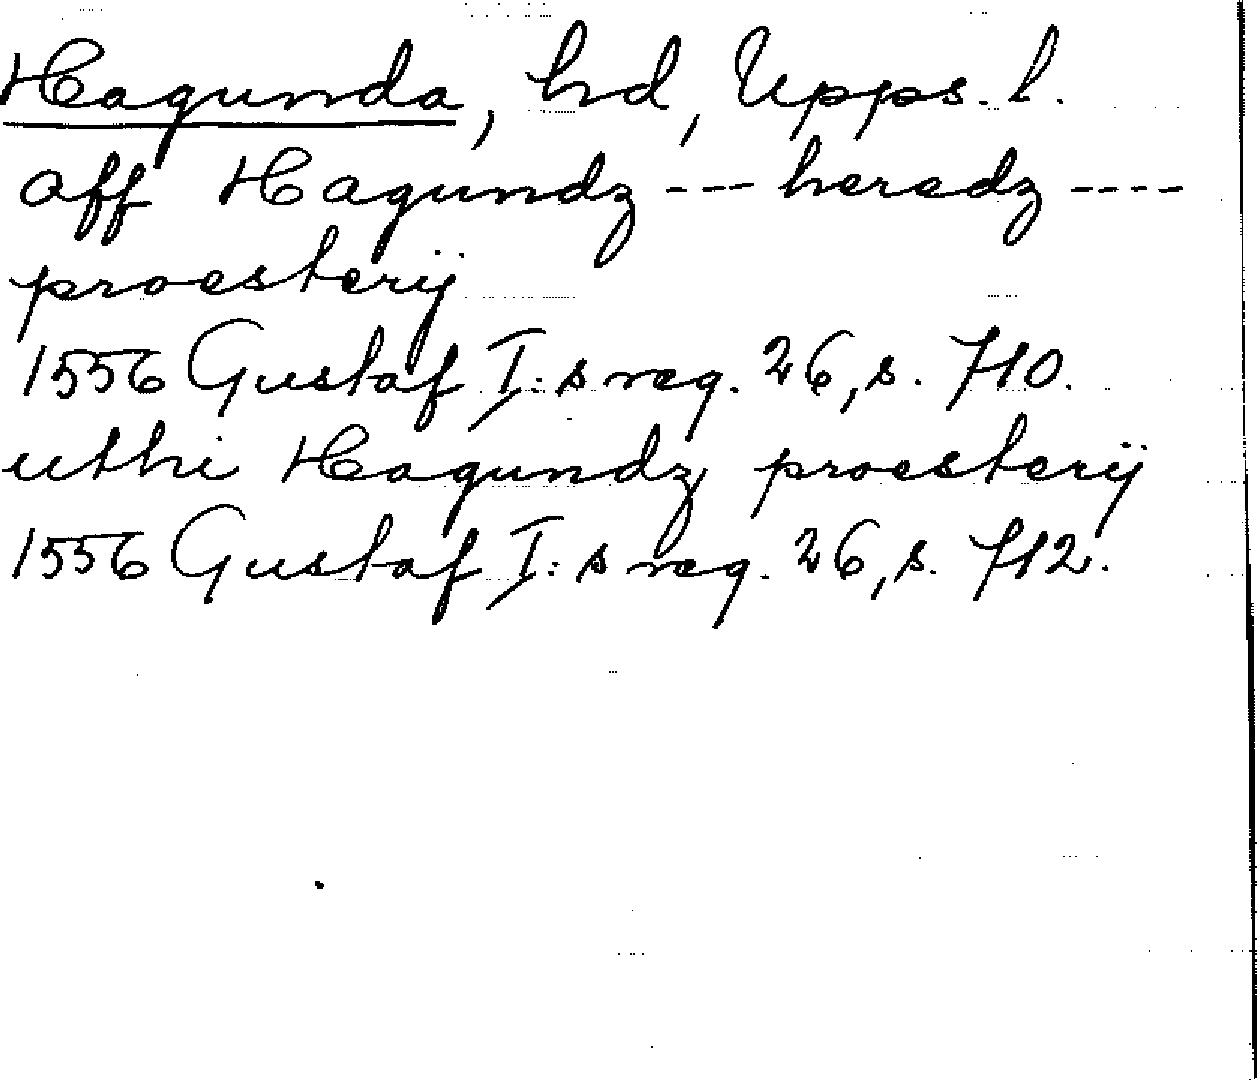 Hagunda, hd, Upps. l.
aff Hagundz --- heradz ----
proesterij
1556 Gustaf I:s reg. 26, s. 710.
uthi Hagundz proesterij
1556 Gustaf I:s reg. 26, s. 712.